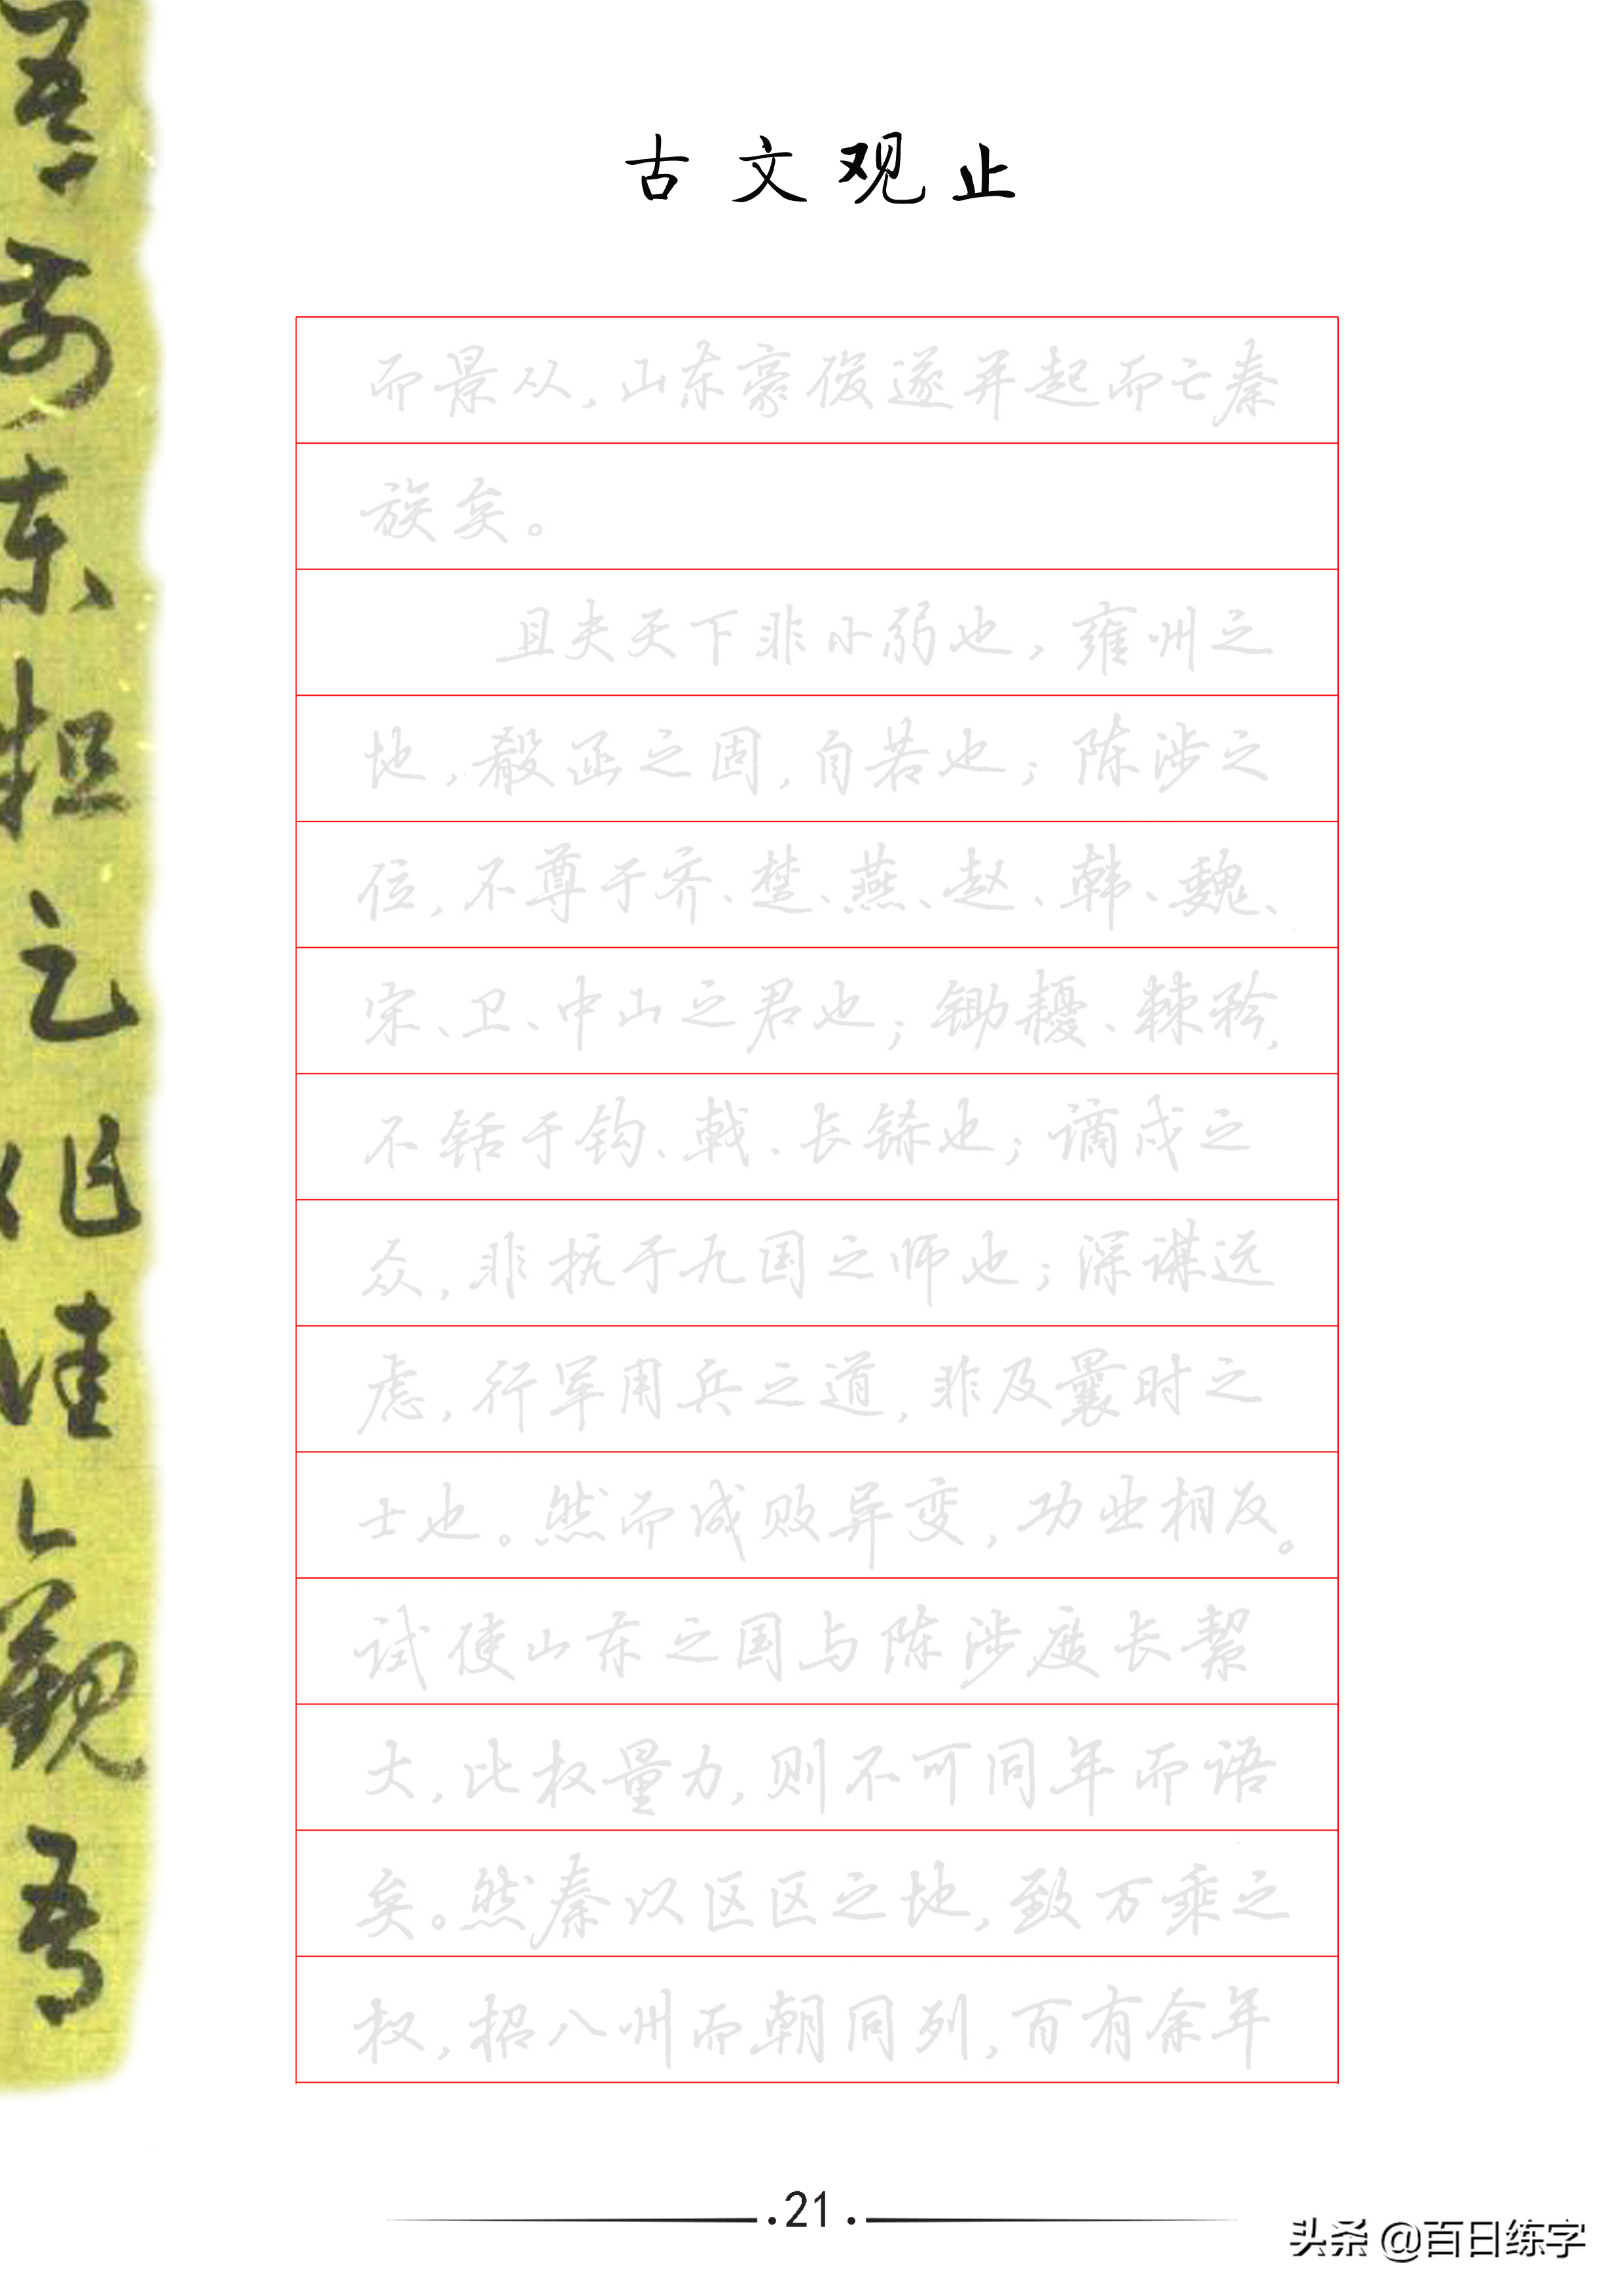 古文观止
而景从,山东豪俊遂并起而亡秦
族矣。
且夫天下非小弱也,雍州之
地,殽函之固,自若也;陈涉之
位,不尊于齐、楚、燕、赵、韩、魏、
宋、卫、中山之君也;锄耰、棘矜,
不铦于钩、戟、长铩也;谪戍之
众,非抗于九国之师也;深谋远
虑,行军用兵之道,非及曩时之
士也。然而成败异变,功业相反。
试使山东之国与陈涉度长絜
大,比权量力,则不可同年而语
矣。然秦以区区之地,致万乘之
权,招八州而朝同列,百有余年
·21·
头条 @百日练字